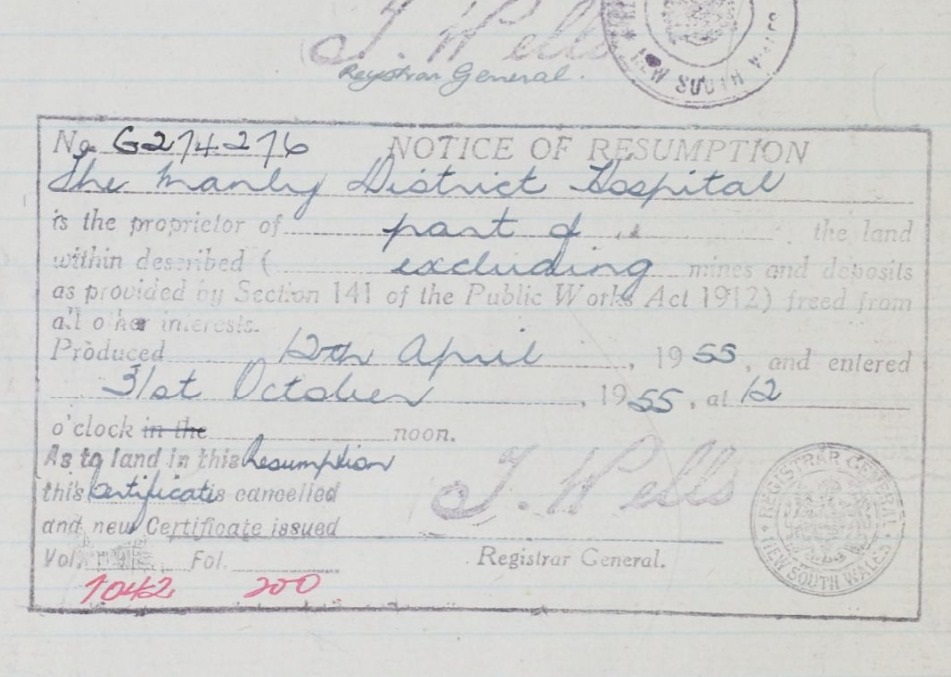 J. Wells
Registrar General.
NEW SOUTH WALES
No. G274276 NOTICE OF RESUMPTION
The Manly District Hospital
is the proprietor of part of the land
within described ( excluding mines and deposits
as provided by Section 141 of the Public Works Act 1912) freed from
all other interests.
Produced 12th April, 1955, and entered
31st October, 1955, at 12
o'clock in the noon.
As to land in this Resumption
this Certificate is cancelled
and new Certificate issued
Vol. Fol.
7042 200
J. Wells
Registrar General.
REGISTRAR GENERAL
NEW SOUTH WALES